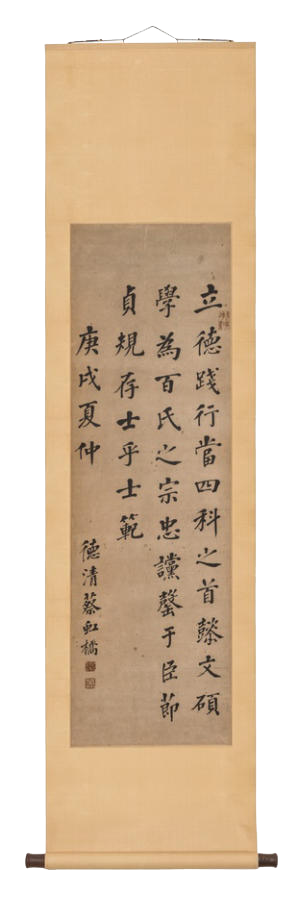 立德踐行當四科之首懿文碩
學為百氏之宗忠讜罄于臣節
貞規存士乎士範
庚戌夏仲 德清蔡虹橋